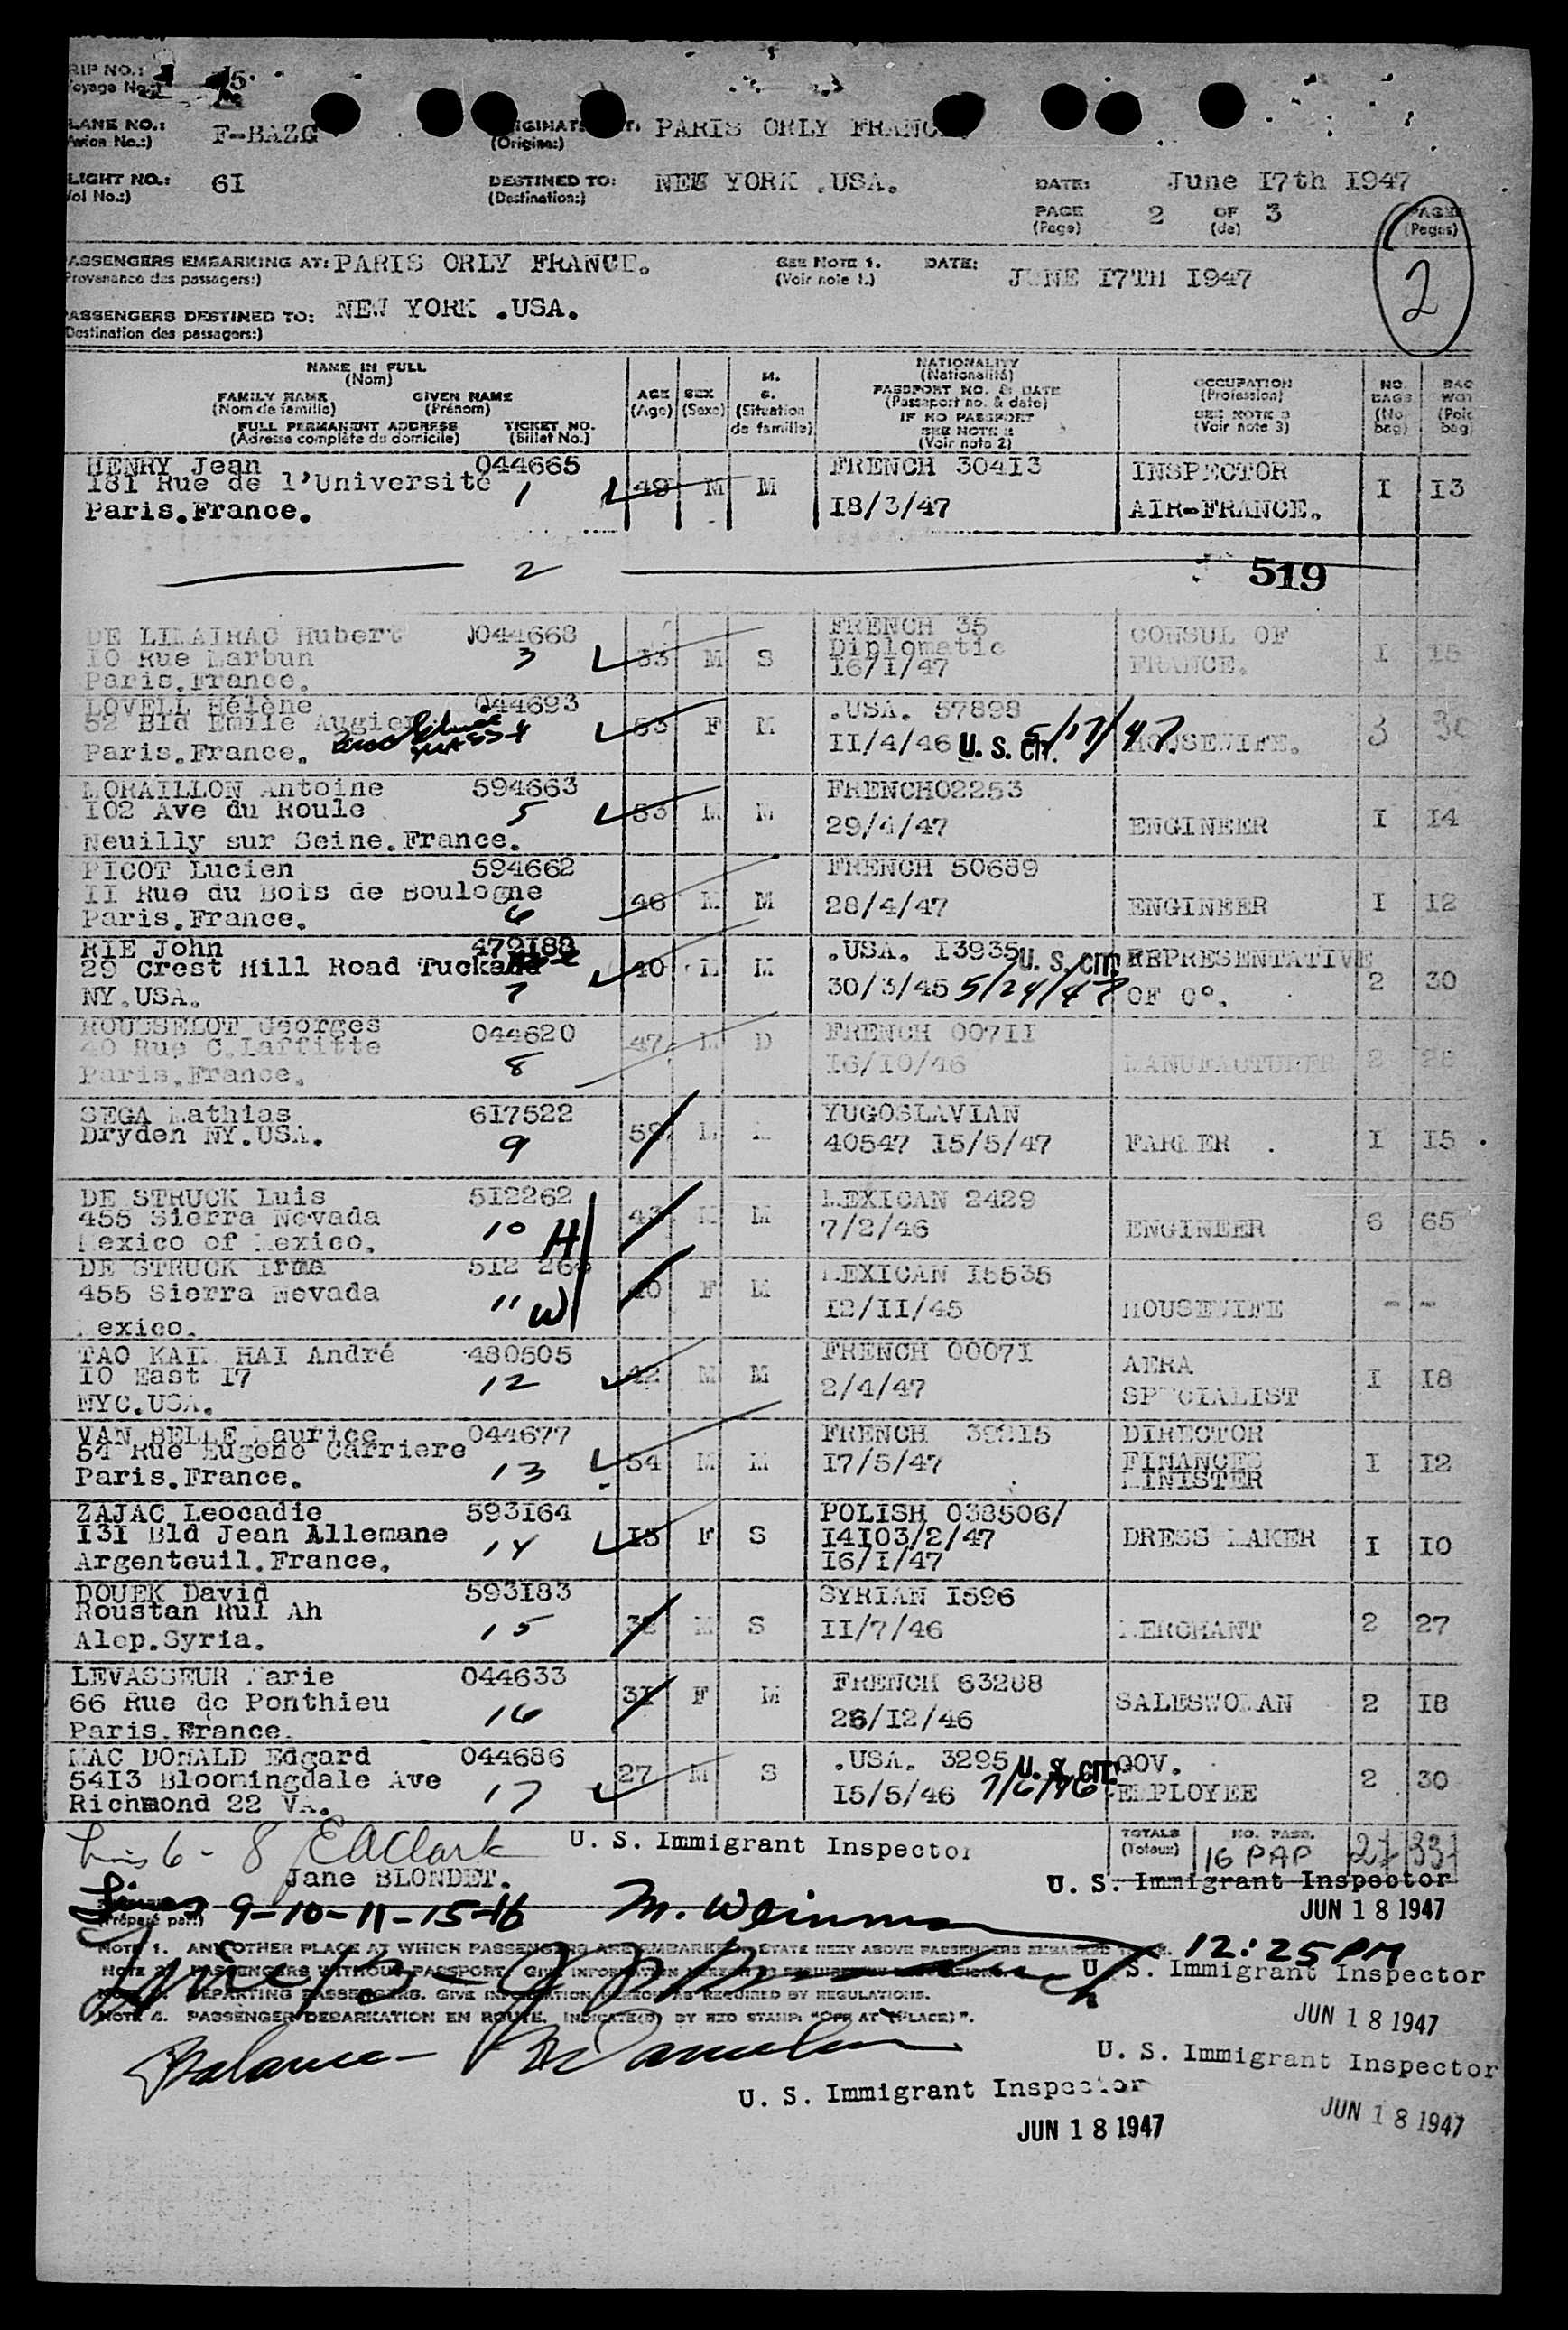 RIP NO.: 5.
oyage No.:)
LANE NO.: F-BAZG ORIGINATED AT: PARIS ORLY FRANCE.
Avion No.:) (Origine:)
LIGHT NO.: 6I DESTINED TO: NEW YORK .USA. DATE: June I7th I947
Vol No.:) (Destination:)
PAGE 2 OF 3 PAGES
(Page) (de) (Pages)
2
ASSENGERS EMBARKING AT: PARIS ORLY FRANCE. SEE NOTE 1. DATE: JUNE I7TH I947
Provenance des passagers:) (Voir note 1.)
ASSENGERS DESTINED TO: NEW YORK .USA.
Destination des passagers:)
NAME IN FULL
(Nom)
FAMILY NAME GIVEN NAME
(Nom de famille) (Prénom)
FULL PERMANENT ADDRESS TICKET NO.
(Adresse complète du domicile) (Billet No.)
AGE
(Age)
SEX
(Sexe)
M.
S.
(Situation
de famille)
NATIONALITY
(Nationalité)
PASSPORT NO. & DATE
(Passeport no. & date)
IF NO PASSPORT
SEE NOTE 2
(Voir note 2)
OCCUPATION
(Profession)
SEE NOTE 3
(Voir note 3)
NO.
BAGS
(No.
bag)
BAG
WGT
(Poids
bag)
HENRY Jean 044665 FRENCH 304I3 INSPECTOR
I8I Rue de l'Université 1 49 M M I I3
Paris.France. I8/3/47 AIR-FRANCE.
2 519
DE LILAIRAC Hubert J044668 FRENCH 35 CONSUL OF
I0 Rue Larbun 3 33 M S Diplomatic I I5
Paris.France. I6/I/47 FRANCE.
LOVELL Hélène 044693 .USA. 57898
52 Bld Emile Augier 53 F M 3 30
Paris.France. II/4/46 U. S. CIT. 5/17/47. HOUSEWIFE.
LORAILLON Antoine 594663 FRENCH02253
I02 Ave du Roule 5 53 M M ENGINEER I I4
Neuilly sur Seine.France. 29/4/47
PICOT Lucien 594662 FRENCH 50689
II Rue du Bois de Boulogne 46 M M 28/4/47 ENGINEER I I2
Paris.France. 6
RIE John 479I88 .USA. I3935 U. S. CIT. REPRESENTATIVE
29 Crest Hill Road Tuckahoe 40 M M 2 30
NY.USA. 7 30/3/45 5/24/47 OF C°.
ROUSSELOT Georges 044620 FRENCH 007II
40 Rue C.Laffitte 8 47 M D MANUFACTURER 2 28
Paris.France. I6/I0/46
SEGA Mathias 6I7522 YUGOSLAVIAN
Dryden NY.USA. 9 59 M M 40547 I5/5/47 FARMER . I I5
DE STRUCK Luis 5I2262 MEXICAN 2429
455 Sierra Nevada 10 H 43 M M 7/2/46 ENGINEER 6 65
Mexico of Mexico.
DE STRUCK Irma 5I2 26 MEXICAN I5535
455 Sierra Nevada 11 W 40 F M I2/II/45 HOUSEWIFE - -
Mexico.
TAO KAIM HAI André 480505 FRENCH 0007I AERA
I0 East I7 12 42 M M 2/4/47 I I8
NYC.USA. SPECIALIST
VAN BELLE Maurice 044677 FRENCH 39215 DIRECTOR
54 Rue Eugene Carriere 13 54 M M I7/5/47 FINANCES I I2
Paris.France. MINISTER
ZAJAC Leocadie 593I64 POLISH 038506/
I3I Bld Jean Allemane 14 I5 F S I4I03/2/47 DRESS MAKER I I0
Argenteuil.France. I6/I/47
DOUEK David 593I83 SYRIAN I596
Roustan Rul Ah 15 32 M S II/7/46 MERCHANT 2 27
Alep.Syria.
LEVASSEUR Marie 044633 FRENCH 63288
66 Rue de Ponthieu 16 3I F M 26/I2/46 SALESWOMAN 2 I8
Paris.France.
MAC DONALD Edgard 044686 .USA. 3295 U. S. CIT. GOV.
54I3 Bloomingdale Ave 17 27 M S 2 30
Richmond 22 VA. I5/5/46 7/6/46 EMPLOYEE
6 - 8 E A Clark U. S. Immigrant Inspector TOTALS NO. PASS. 16 PAP 27 331
(Totaux)
Jane BLONDET. U. S. Immigrant Inspector
Lines 9-10-11-15-16 M. Weinman JUN 18 1947
(Préparé par:)
NOTE 1. ANY OTHER PLACE AT WHICH PASSENGERS ARE EMBARKED, STATE NEXT ABOVE PASSENGERS EMBARKED 12:25 PM
NOTE 2. PASSENGERS WITHOUT PASSPORT. GIVE INFORMATION U. S. Immigrant Inspector
NOTE 3. DEPARTING PASSENGERS. GIVE INFORMATION HEREON AS REQUIRED BY REGULATIONS.
NOTE 4. PASSENGER DEBARKATION EN ROUTE. INDICATE(D) BY RED STAMP: "OFF AT (PLACE)". JUN 18 1947
Balance - U. S. Immigrant Inspector
U. S. Immigrant Inspector
JUN 18 1947 JUN 18 1947